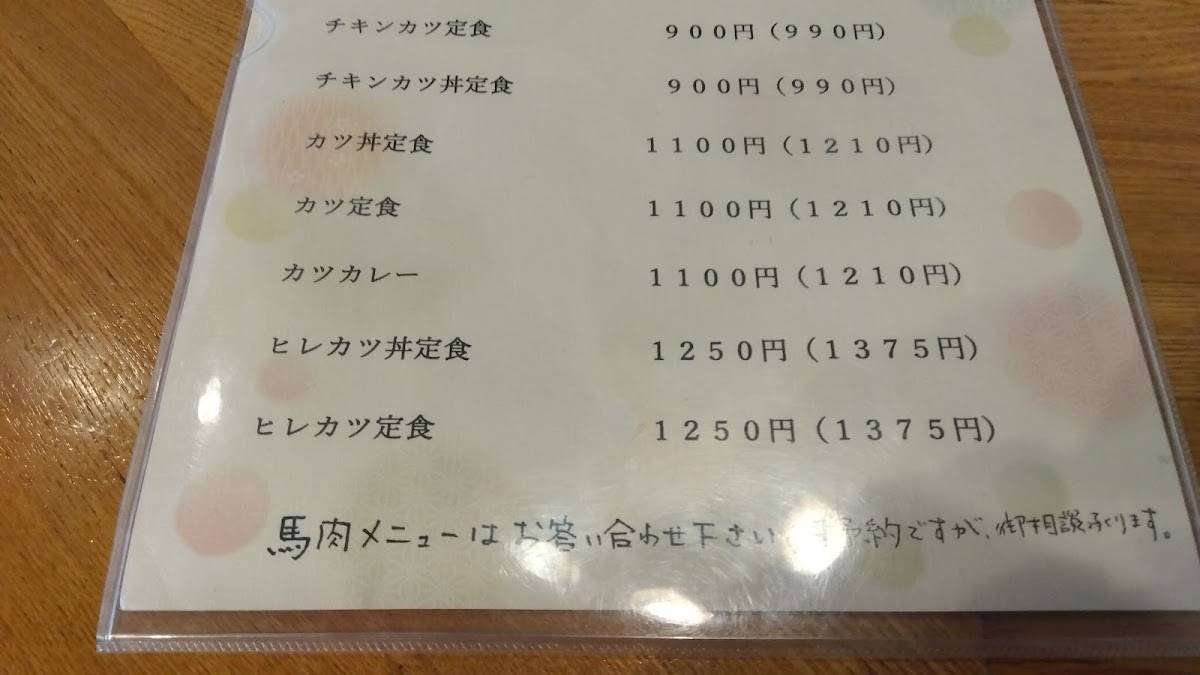 チキンカツ定食 900円（990円）
チキンカツ丼定食 900円（990円）
カツ丼定食 1100円（1210円）
カツ定食 1100円（1210円）
カツカレー 1100円（1210円）
ヒレカツ丼定食 1250円（1375円）
ヒレカツ定食 1250円（1375円）
馬肉メニューはお答い合わせ下さい 予約ですが、御相談承ります。